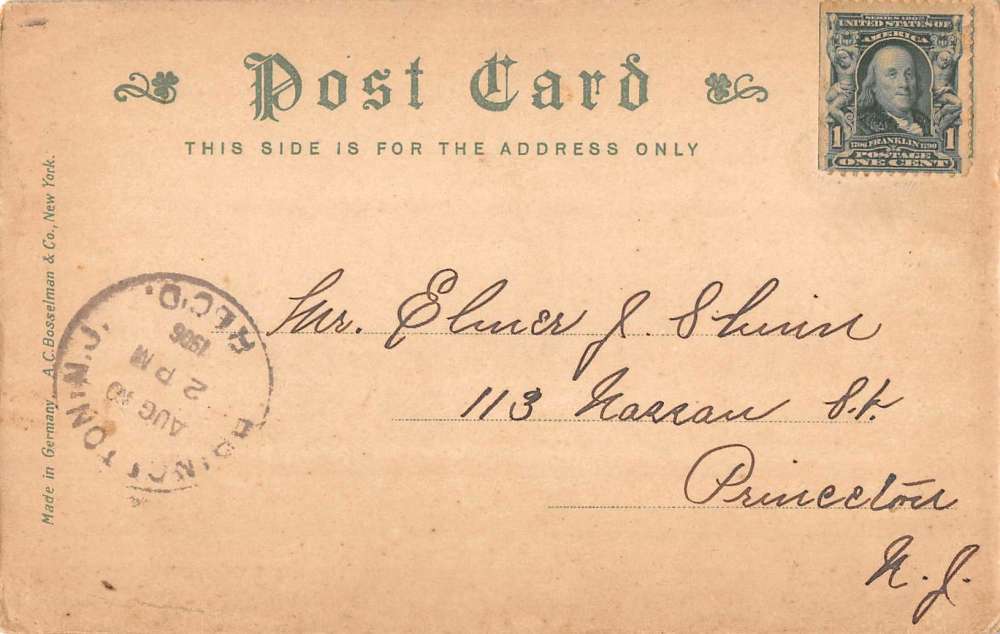 Post Card
THIS SIDE IS FOR THE ADDRESS ONLY
SERIES 1902
UNITED STATES OF
AMERICA
1 1706 FRANKLIN 1790 1
POSTAGE
ONE CENT
Made in Germany, A.C. Bosselman & Co., New York.
PRINCETON, N.J.
AUG 10
2 PM
1906
REC'D.
Mr. Elmer J. Shinn
113 Nassau St.
Princeton
N. J.